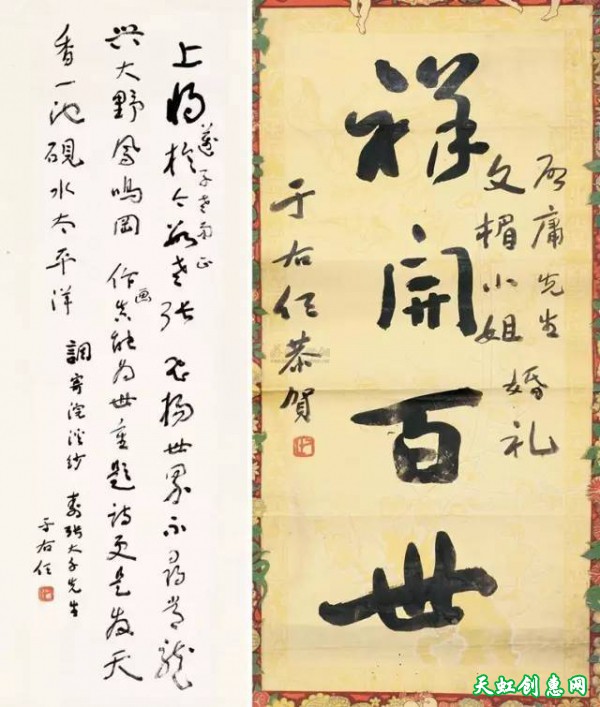 上將於今數老張飛揚世界不尋常龍
興大野鳳鳴岡作畫真能為世重題詩更是發天
香一池硯水太平洋
調寄浣溪紗
壽張大千先生
于右任
庸先生
文楣小姐
婚礼
祥開百世
于右任恭賀
天虹创惠网